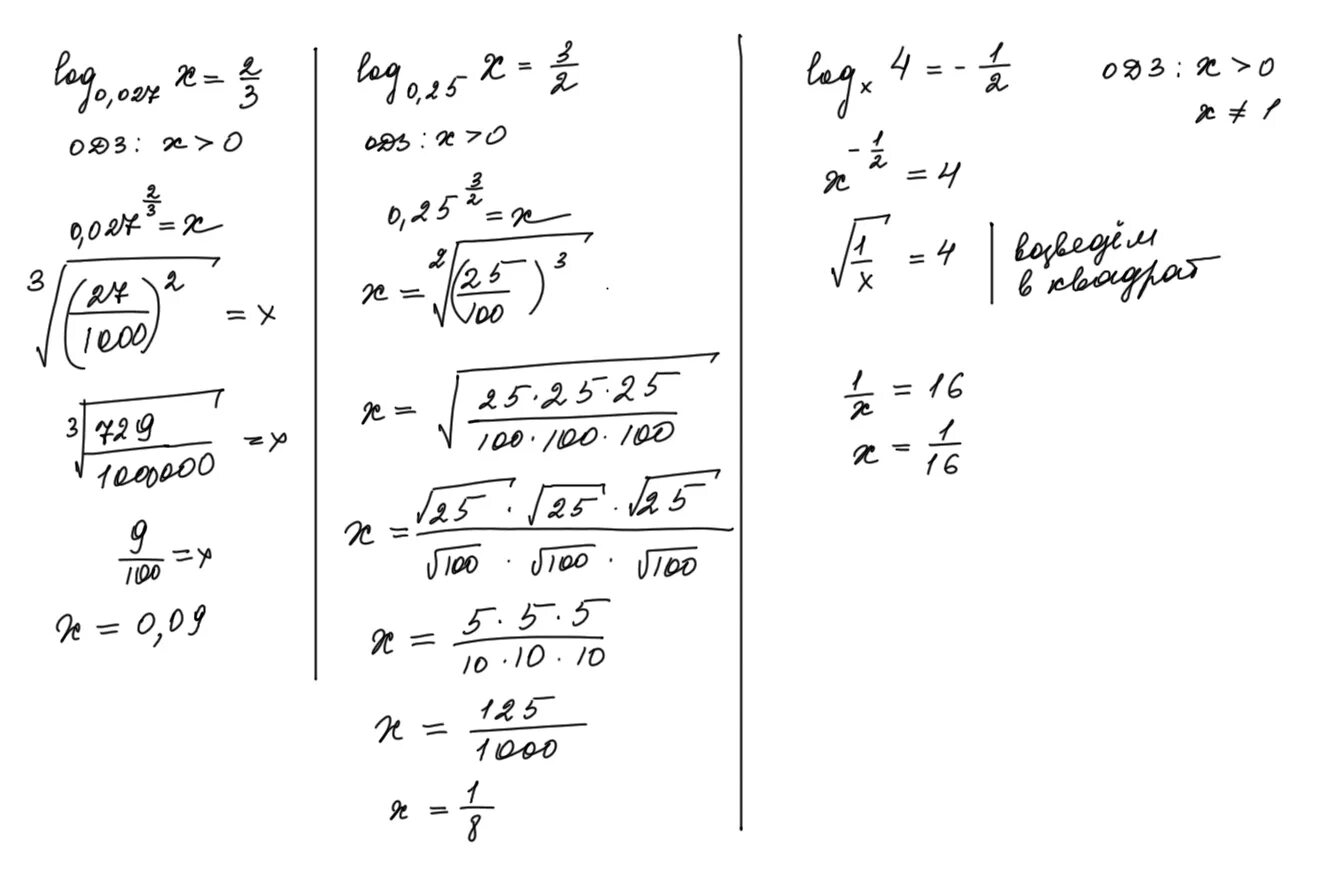 log₀,₀₂₇ x = 2/3
ОДЗ: x > 0
0,027^(2/3) = x
∛((27/1000)²) = x
∛(729/1000000) = x
9/100 = x
x = 0,09
log₀,₂₅ x = 3/2
ОДЗ: x > 0
0,25^(3/2) = x
x = ²√((25/100)³)
x = √((25·25·25)/(100·100·100))
x = (√25 · √25 · √25)/(√100 · √100 · √100)
x = (5·5·5)/(10·10·10)
x = 125/1000
x = 1/8
logₓ 4 = -1/2 ОДЗ: x > 0
x ≠ 1
x^(-1/2) = 4
√(1/x) = 4 | возведём
в квадрат
1/x = 16
x = 1/16